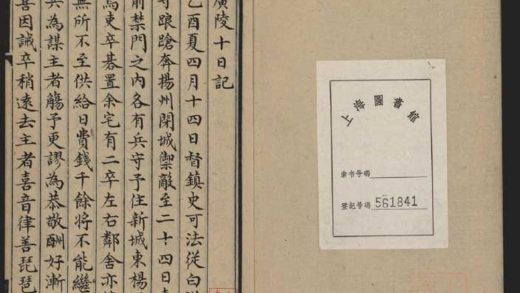 廣陵十日記
乙酉夏四月十四日督鎮史可法從白洋
守踉蹌奔揚州閉城禦敵至二十四日
前禁門之內各有兵守予住新城東楊
焉吏卒碁置余宅有二卒左右鄰舍亦
無所不至供給日費錢千餘將不能繼
共為謀主者觴予更謬為恭敬酬好漸
喜因誡卒稍遠去主者喜音律善琵琶
上海圖書館
索书号碼
登記号碼 561841